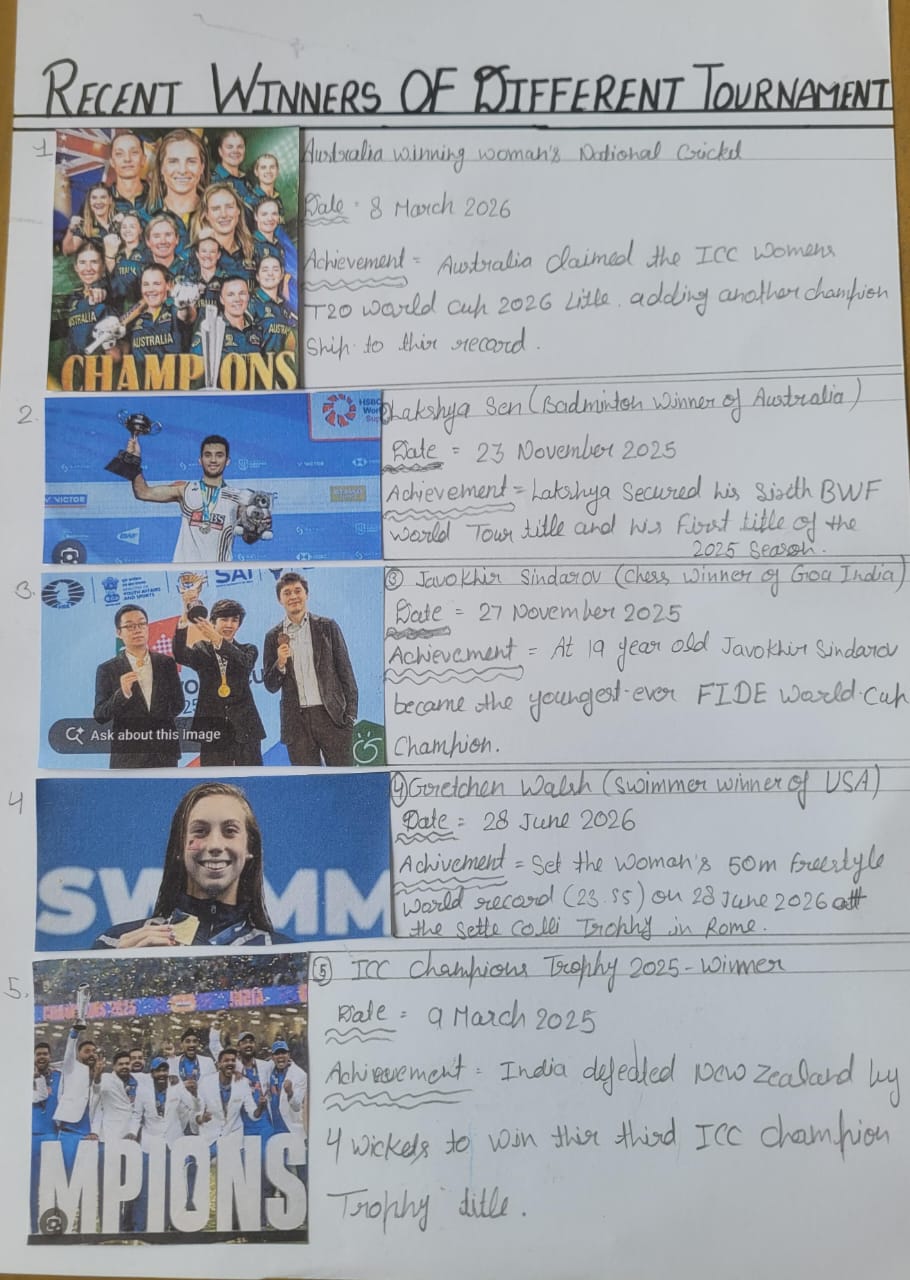 RECENT WINNERS OF DIFFERENT TOURNAMENT
1
Australia winning woman's National Cricket
Date = 8 March 2026
Achievement = Australia claimed the ICC Womens
T20 World Cup 2026 title. adding another champion
ship to their record.
AUSTRALIA
AUSTRALIA
CHAMPIONS
2.
Lakshya Sen (Badminton Winner of Australia)
Date = 23 November 2025
Achievement = Lakshya Secured his Sixth BWF
World Tour title and his First title of the
2025 Season.
HSBC
VICTOR
BWF
3.
③ Javokhir Sindarov (Chess winner of Goa India)
Date = 27 November 2025
Achievement = At 19 year old Javokhir Sindarov
became the youngest-ever FIDE World-Cup
Champion.
SAI
Ask about this image
4
④ Gretchen Walsh (Swimmer winner of USA)
Date = 28 June 2026
Achivement = Set the Woman's 50m freestyle
World record (23.55) on 28 June 2026 att
the Sette Colli Trophy in Rome.
SWIMM
5.
⑤ ICC Champions Trophy 2025 - Winner
Date = 9 March 2025
Achievement = India defeated New Zealand by
4 wickets to win their third ICC Champion
Trophy title.
MPIONS